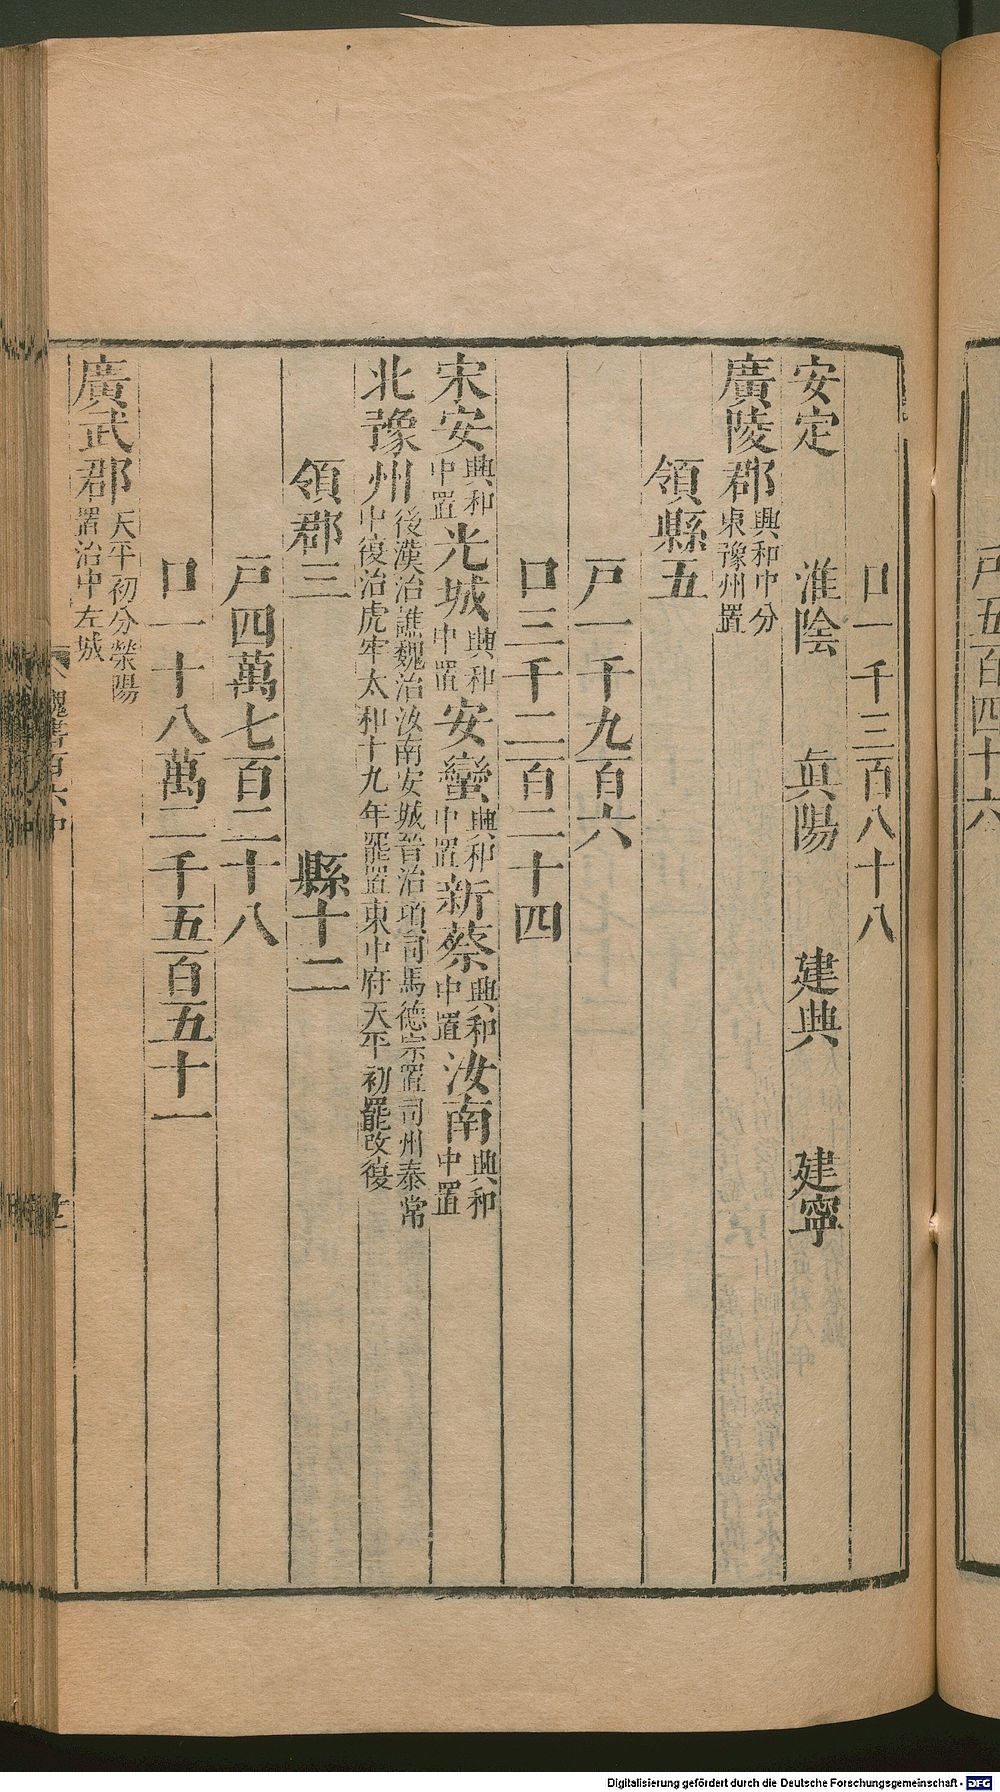 口一千三百八十八
安定 淮陰 眞陽 建興 建寧
廣陵郡興和中分東豫州置
領縣五
戸一千九百六
口三千二百二十四
宋安興和中置光城興和中置安蠻興和中置新蔡興和中置汝南興和中置
北豫州後漢治譙魏治汝南安城晉治項司馬德宗置司州泰常中復治虎牢太和十九年罷置東中府天平初罷改復
領郡三 縣十二
戸四萬七百二十八
口一十八萬二千五百五十一
廣武郡天平初分滎陽置治中左城
魏書百六中
戸五百四十六
Digitalisierung gefördert durch die Deutsche Forschungsgemeinschaft - DFG